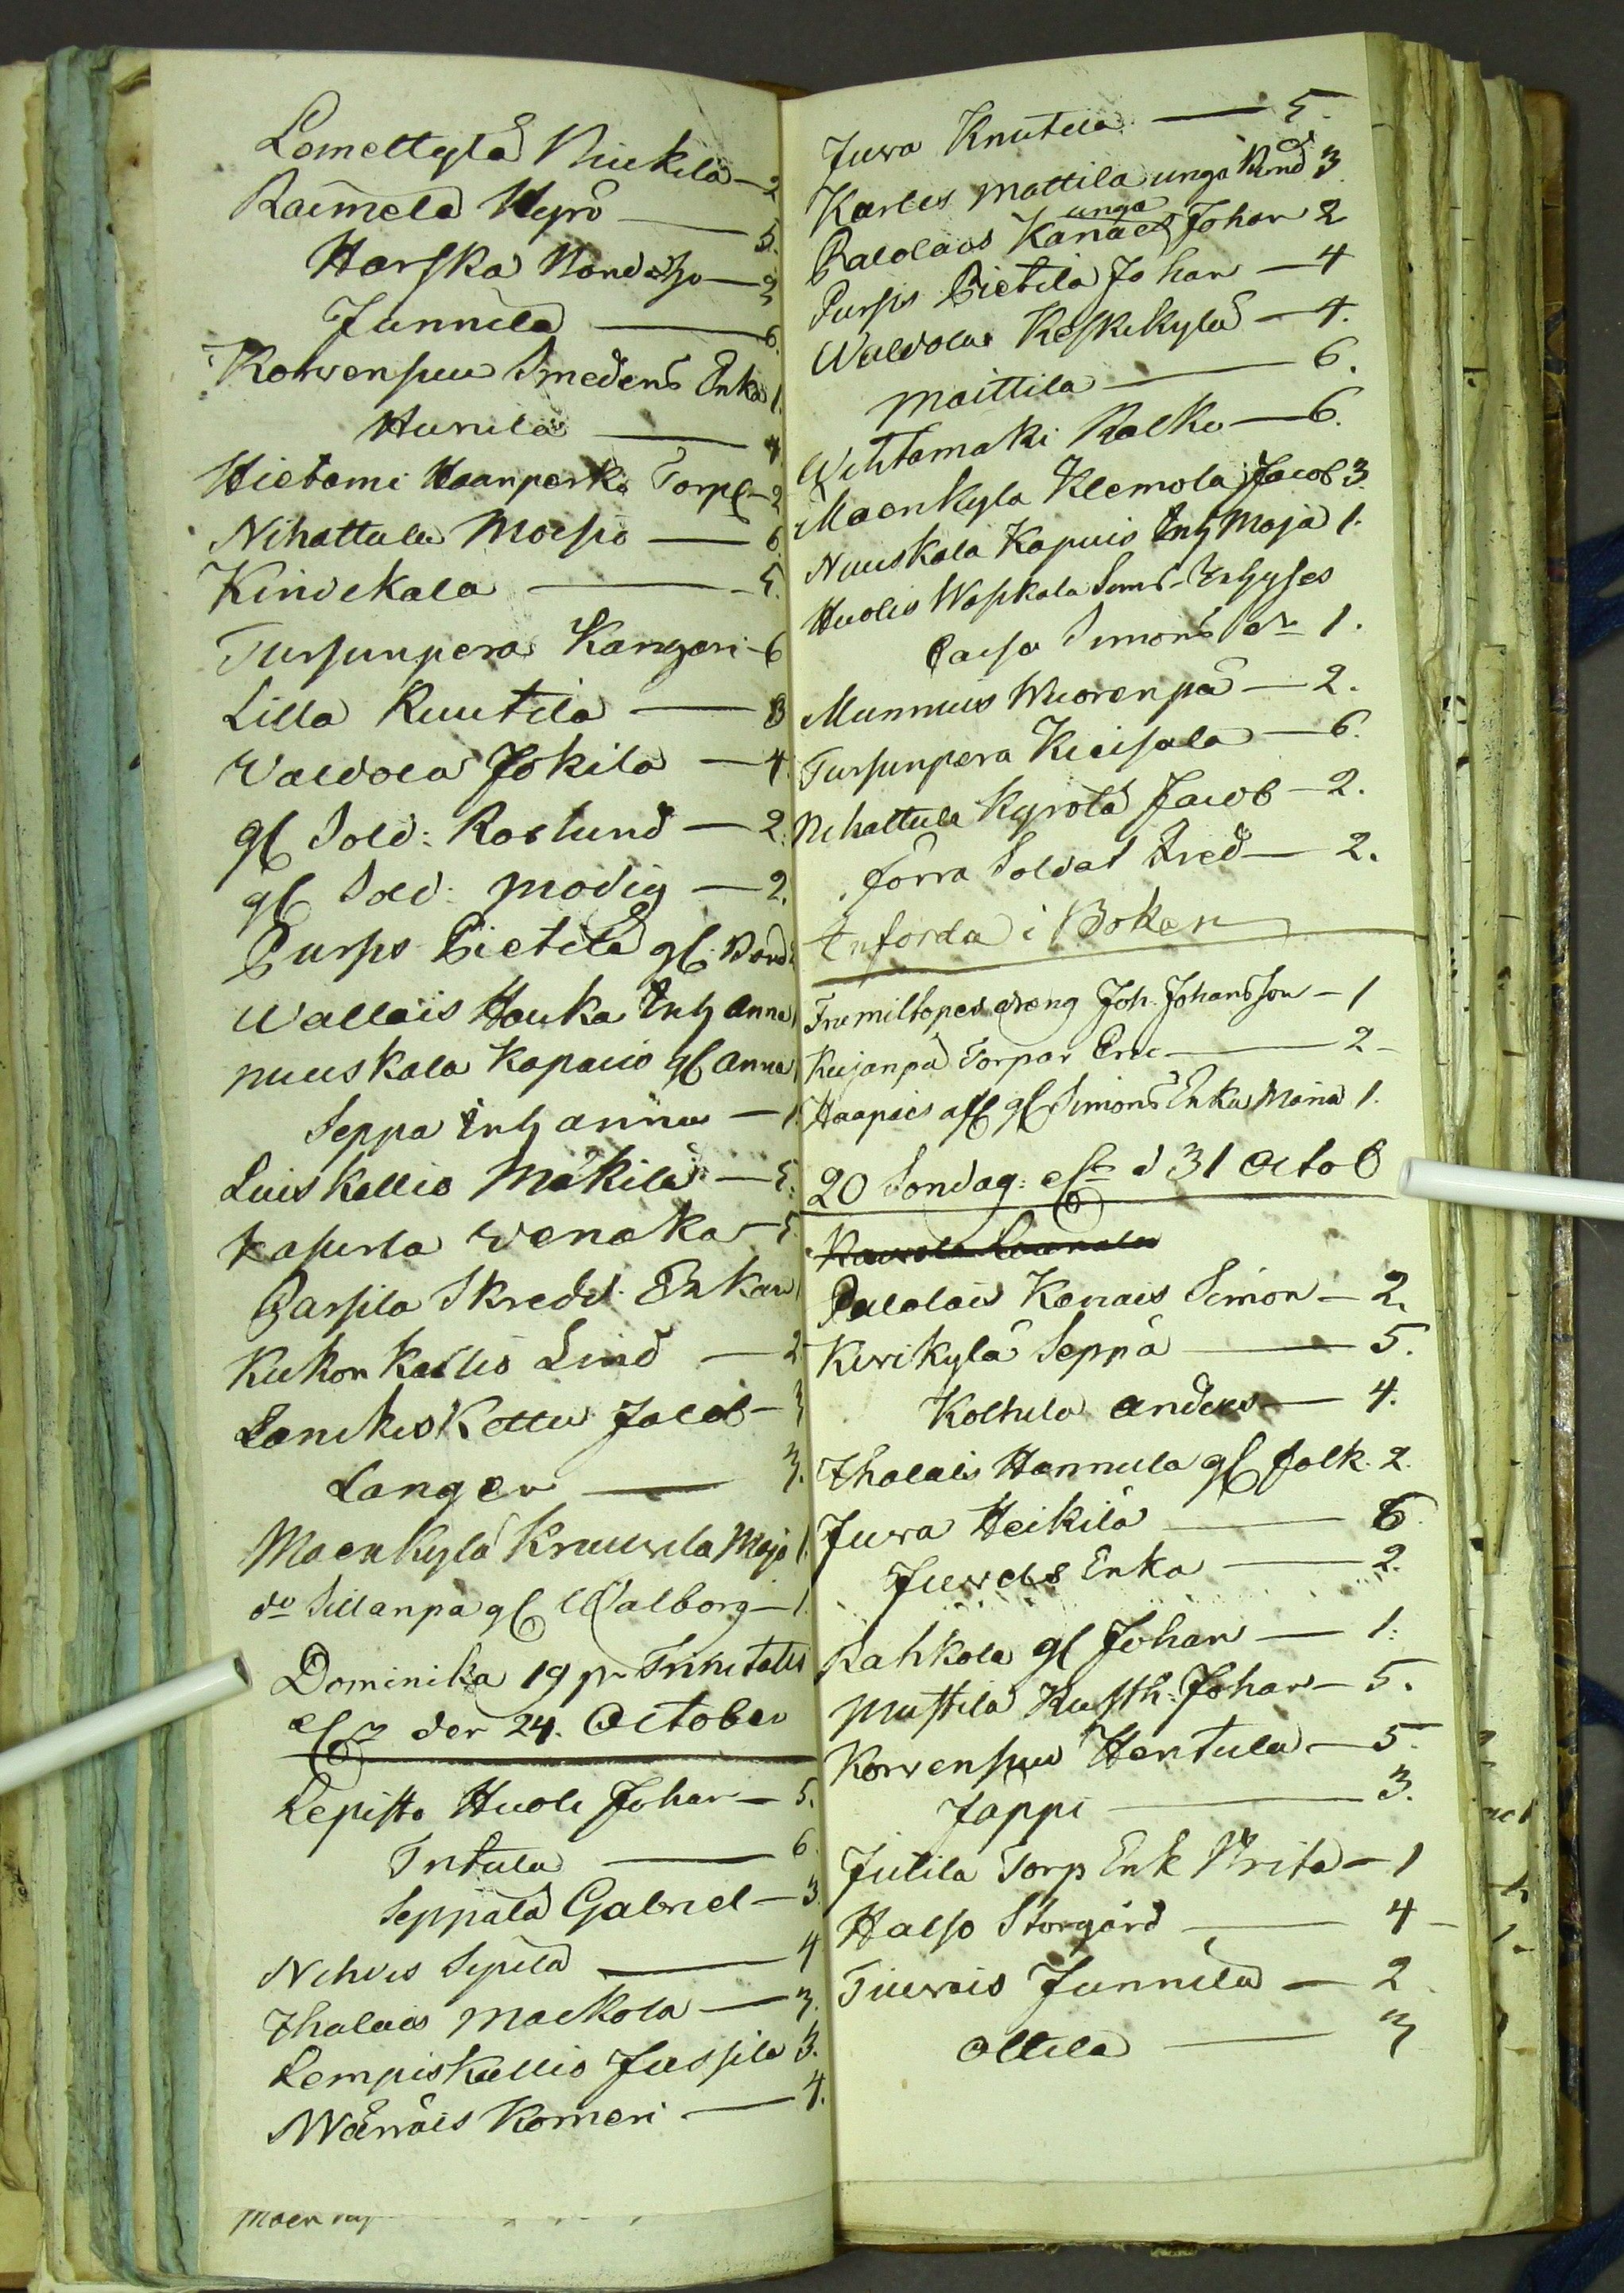 Lomettylä Niukila - 2
Raimela Kyrö - 5.
Harska Bondeso - 2
Junnila - 6.
Korvenpuu Smedens Enka 1.
Hunila - 4
Hietami Haanperkä Torp - 2
Nihattula Moesio - 6.
Kinvekala - 5.
Tursunpera Kangari - 6
Lilla Ruutila - 3
Valvola Jokila - 4.
gl Sold: Roslund - 2.
gl Sold: Modig - 2.
Purps Pietilä gl. Bond
Wallais Hauka Enk Anna 1
Nuuskala Kapuis gl Anna 1
Seppa Enk Anna - 1.
Luiskallio Mäkilä - 5.
Kapusta Venaka - 5
Parsila Skredd. Enkan 1
Kukonkallio Lind - 2
Lankis Kottu Jacob - 3
Langen - 3.
Maenkylä Kruuvila Maja 1.
do Sillanpa gl Walborg - 1.
Dominika 19 p. Trinitatis
eller den 24. October
Lepisto Huoli Johan - 5.
Intula - 6.
Seppälä Gabriel - 3.
Nihvis Sipilä - 4
Ihalais Maekola - 3.
Lempiskallio Jussila 3.
Wänäis Komeri - 4.
Maen
Juva Knutila - 5.
Karles Mattila unga Bond 3
unga
Palolais Kanais Johan 2
Purps Pietila Johan - 4
Walvolas Keskikylä - 4.
Maittila - 6.
Wihtamaki Kalko - 6.
Maenkyla Klemola Jacob 3.
Nuuskala Kapuis Enk Maja 1.
Huolis Waskala Sons - Inhyses
Caisa Simons dr 1.
Munnus Wuorenpä - 2.
Tursunpera Kieisala - 6.
Nihattula Kyrölä Jacob - 2.
förra Soldat Fred - 2.
Införda i Boken
Frumillopes dreng Joh. Johansson - 1
Kujanpä Torpar Eric - 2 -
Haapais gl Simons Enka Maria 1.
20 Söndag: eft. d 31 Octob
Palolais Kanais Simon - 2.
Kirikylä Seppä - 5.
Koltula Anders - 4.
Ihalais Hannula gl folk. 2.
Juva Heikilä - 6.
Juvels Enka - 2.
Rahkola gl Johan - 1.
Mustila Kusth. Johan - 5.
Korvenpuu Hentula - 5.
Jäppi - 3.
Jutila Torp Enk Brita - 1
Halso Storgård - 4 -
Tiuvais Junnila - 2
Ollila - 3